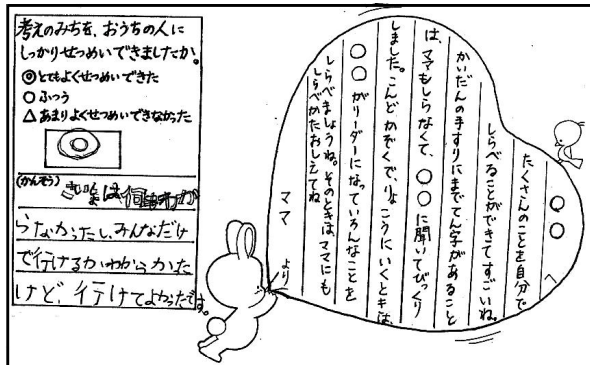 考えのみちを、おうちの人に
しっかりせつめいできましたか。
◎とてもよくせつめいできた
○ふつう
△あまりよくせつめいできなかった
◎
(かんそう)
らなかったし、みんなだけ
で行けるかわからかた
けど、行けてよかったです。
○○へ
たくさんのことを自分で
しらべることができてすごいね。
かいだんの手すりにまでてん字があること
は、ママもしらなくて、○○に聞いてびっくり
しました。こんどかぞくで、りょこうにいくときは、
○○がリーダーになっていろんなことを
しらべましょうね。そのときは、ママにも
しらべかたおしえてね
ママより